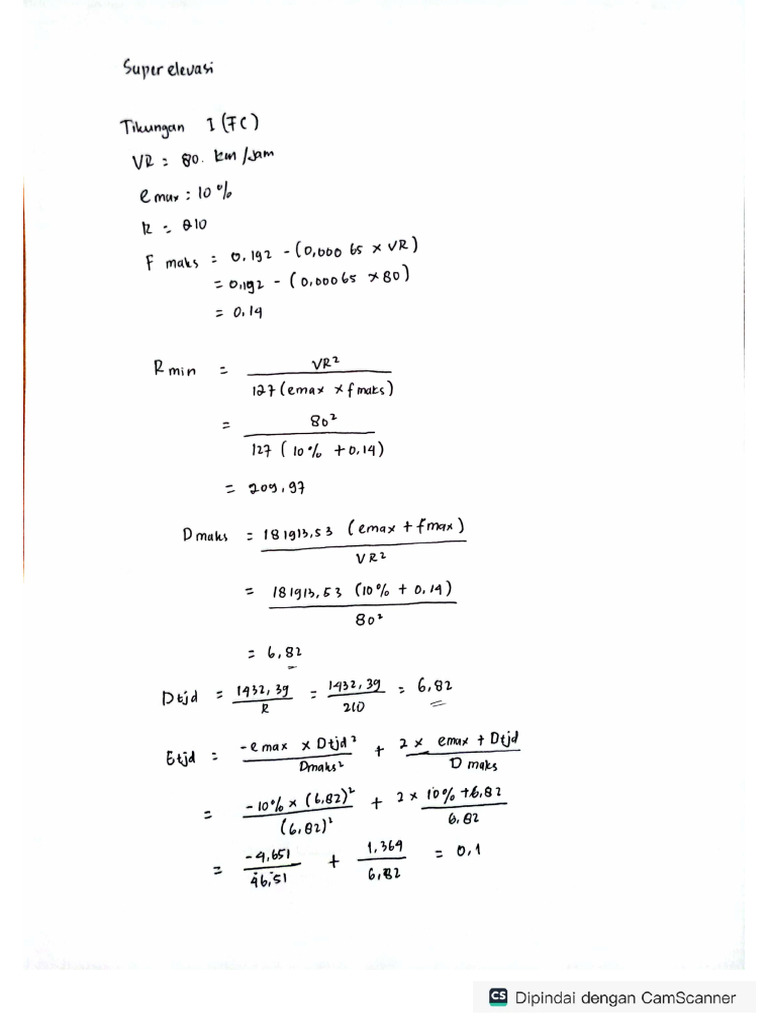 Super elevasi
Tikungan I (FC)
VR = 80. km/Jam
e max : 10%
R = 210
F maks = 0.192 - (0,00065 x VR)
= 0,192 - (0,00065 x 80)
= 0.14
R min = VR² / 127 (emax x f maks)
= 80² / 127 (10% + 0.14)
= 209,97
D maks = 181913,53 (emax + fmax) / VR²
= 181913,53 (10% + 0.14) / 80²
= 6,82
Dtjd = 1432,39 / R = 1432,39 / 210 = 6,82
Etjd = -e max x Dtjd² / Dmaks² + 2 x emax + Dtjd / D maks
= -10% x (6.82)² / (6,82)² + 2 x 10% + 6,82 / 6,82
= -4,651 / 46,51 + 1,364 / 6,82 = 0,1
CS Dipindai dengan CamScanner